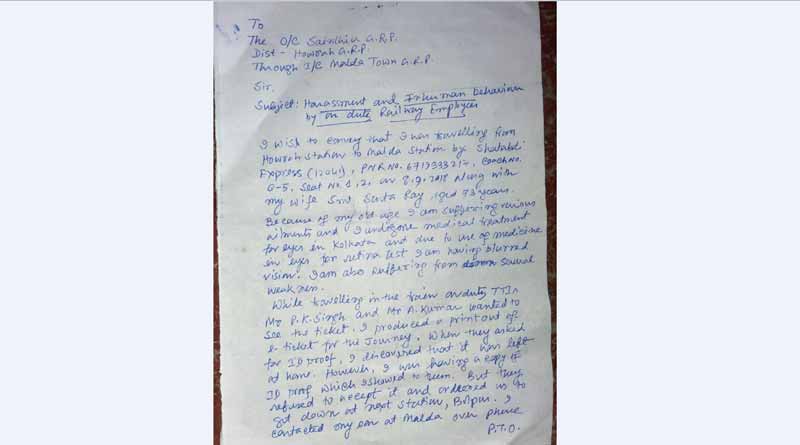 To
The O/C Sainthia G.R.P.
Dist - Howrah G.R.P.
Through I/C Malda Town G.R.P.
Sir,
Subject: Harassment and Inhuman behaviour
by on duty Railway Employees
I wish to convey that I was travelling from
Howrah Station to Malda Station by Shatabdi
Express (12041), PNR No. 6713333217, Coach No.
C-5, Seat No. 1, 2, on 8.9.2018 along with
my wife Smt. Ray aged 73 years.
Because of my old age I am suffering various
ailments and I undergone medical treatment
for eyes in Kolkata and due to use of medicine
in eyes for retina test I am having blurred
vision. I am also suffering from several
weakness.
While travelling in the train on duty TTIs
Mr P.K. Singh and Mr A. Kumar wanted to
see the ticket. I produced a print out of
e-ticket for the journey. When they asked
for ID proof, I discovered that it was left
at home. However, I was having a copy of
ID proof which I showed to them. But they
refused to accept it and ordered us to
got down at next station, Bolpur. I
contacted my son at Malda over phone
P.T.O.